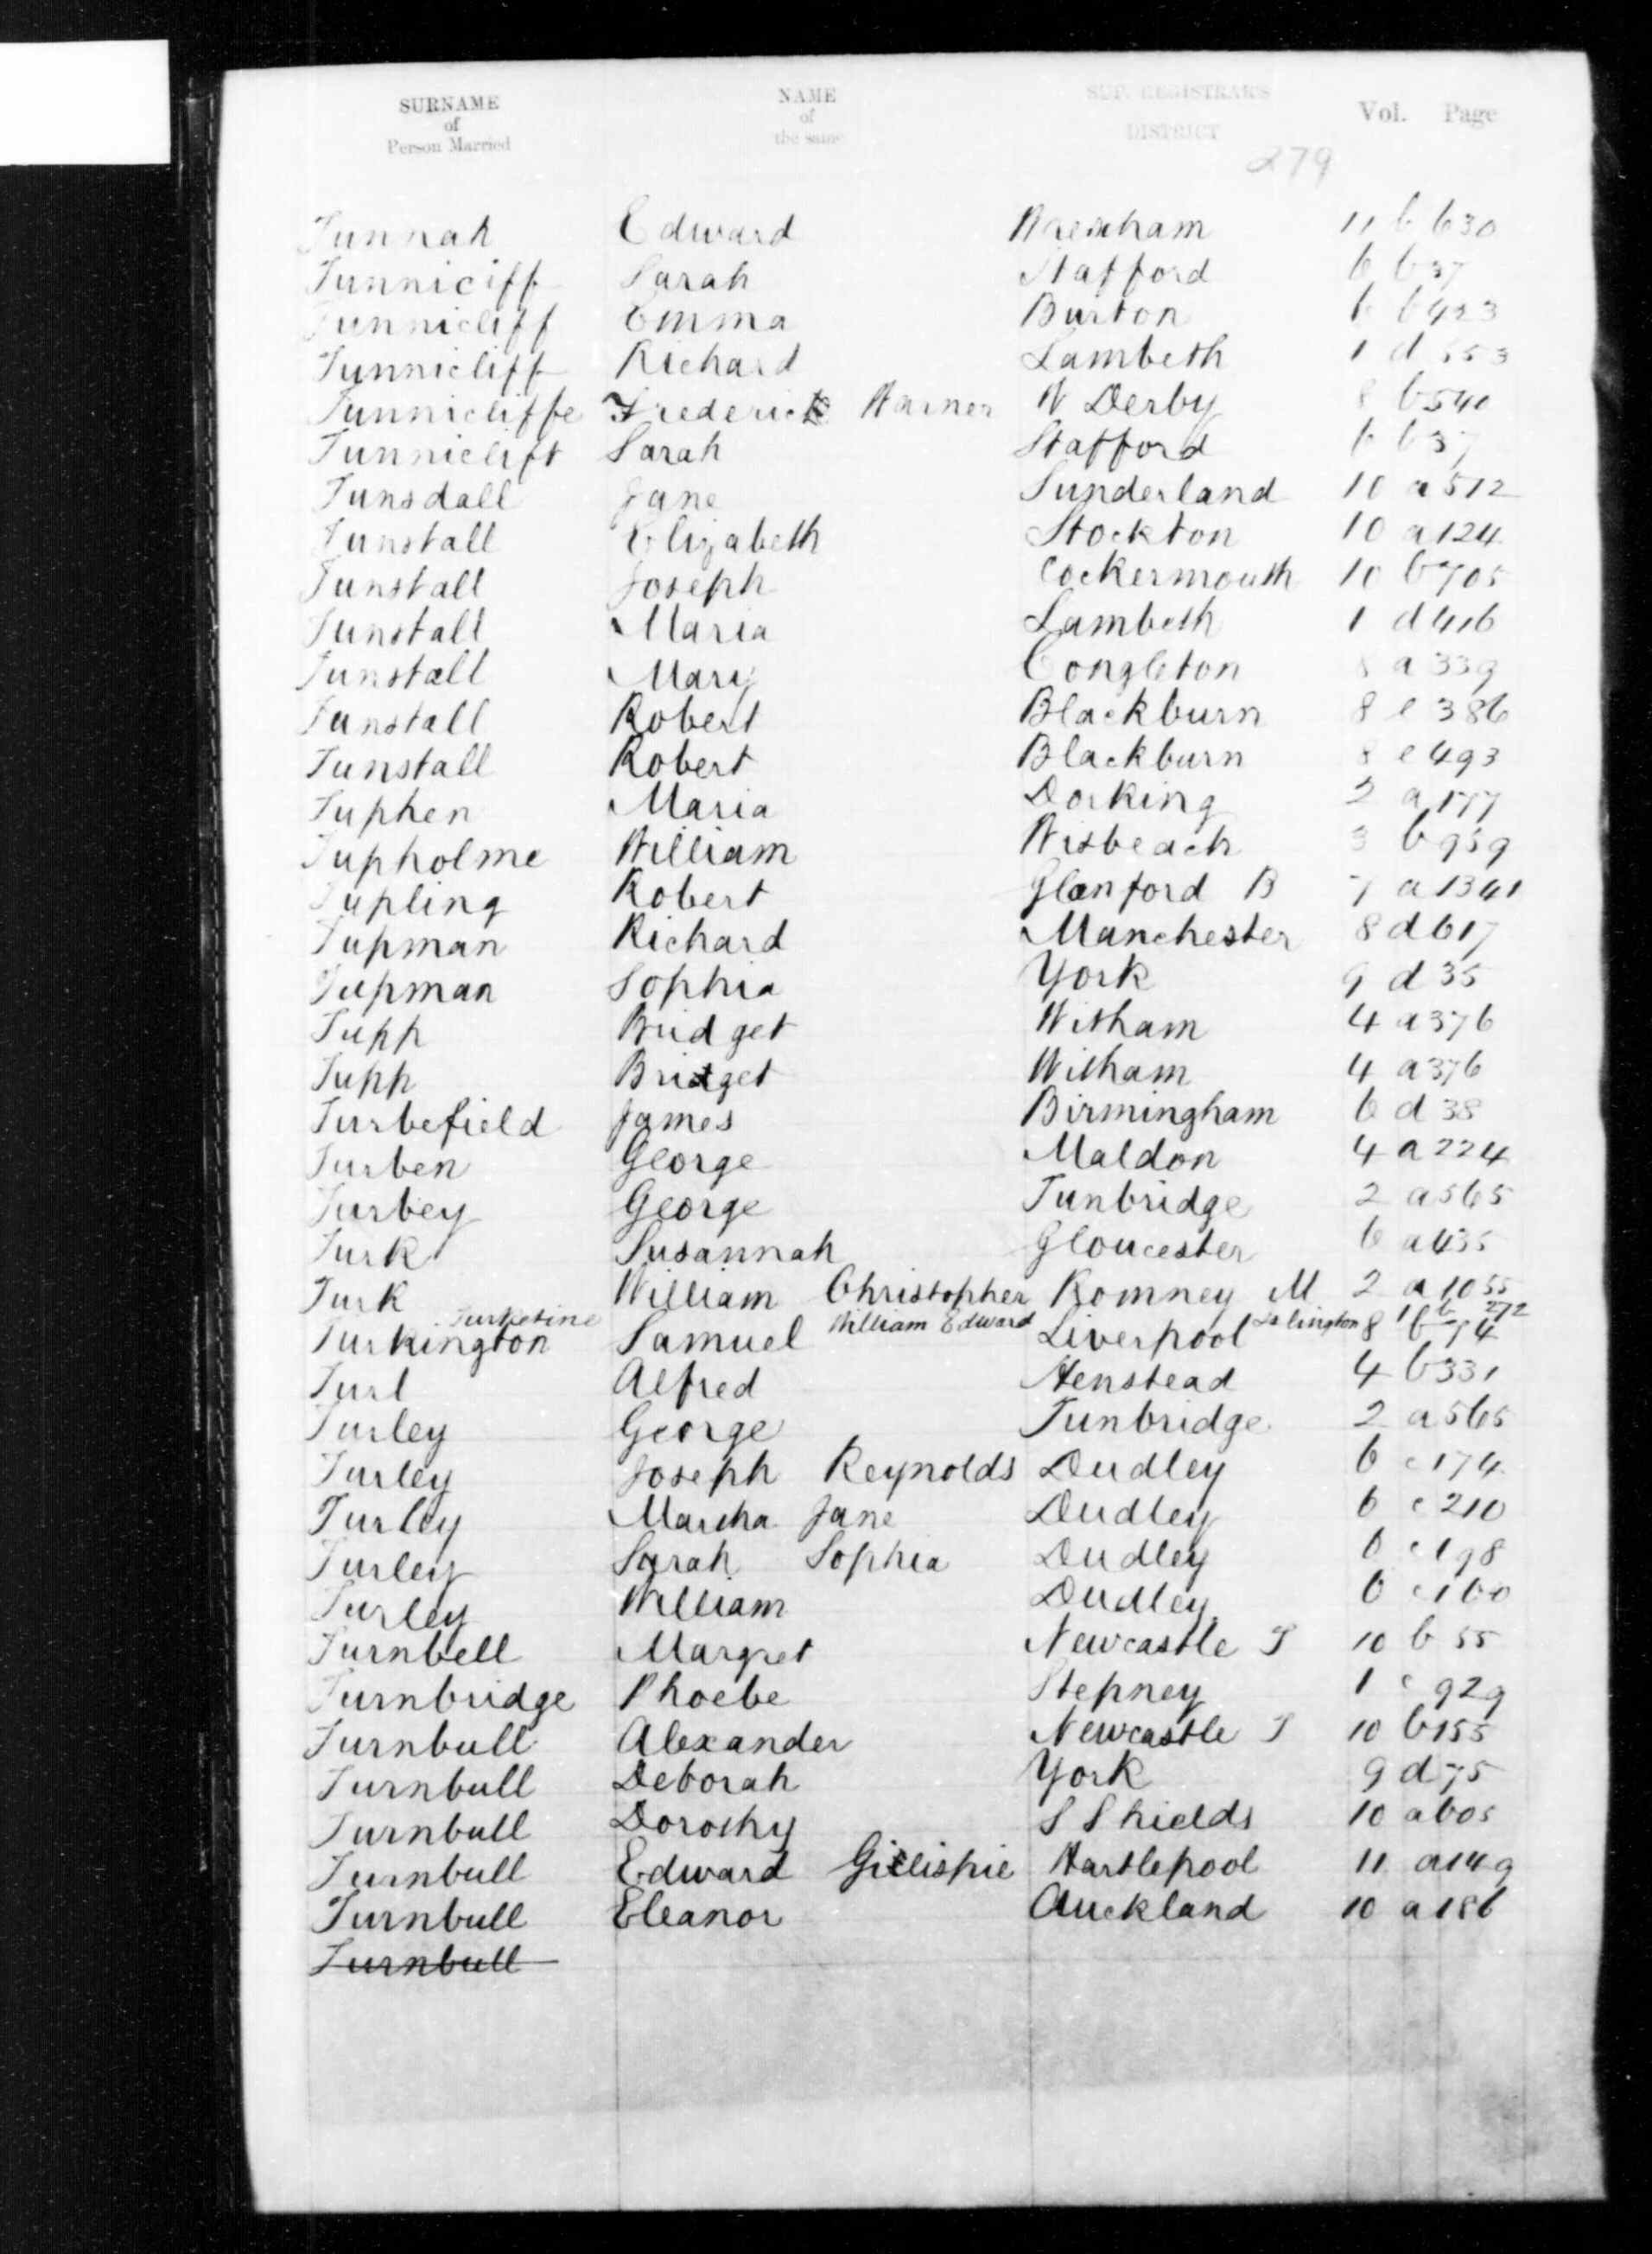 SURNAME of Person Married NAME of the same SUP. REGISTRAR'S DISTRICT Vol. Page
279
Tunnah Edward Wrexham 11 b 630
Tunniciff Sarah Stafford 6 b 37
Tunnicliff Emma Burton 6 b 423
Tunnicliff Richard Lambeth 1 d 553
Tunnicliffe Frederick Warner W Derby 8 b 540
Tunniclift Sarah Stafford 6 b 37
Tunsdall Jane Sunderland 10 a 512
Tunstall Elizabeth Stockton 10 a 124
Tunstall Joseph Cockermouth 10 b 705
Tunstall Maria Lambeth 1 d 416
Tunstall Mary Congleton 8 a 339
Tunstall Robert Blackburn 8 e 386
Tunstall Robert Blackburn 8 e 493
Tuphen Maria Dorking 2 a 177
Tupholme William Wisbeach 3 b 959
Tupling Robert Glanford B 7 a 1341
Tupman Richard Manchester 8 d 617
Tupman Sophia York 9 d 35
Tupp Bridget Witham 4 a 376
Tupp Bridget Witham 4 a 376
Turbefield James Birmingham 6 d 38
Turben George Maldon 4 a 224
Turbey George Tunbridge 2 a 565
Turk Susannah Gloucester 6 a 435
Turk William Christopher Romney M 2 a 1055
Turketine William Edward Islington 1 b 272
Turkington Samuel Liverpool 8 b 74
Turl Alfred Henstead 4 b 331
Turley George Tunbridge 2 a 565
Turley Joseph Reynolds Dudley 6 c 174
Turley Martha Jane Dudley 6 c 210
Turley Sarah Sophia Dudley 6 c 198
Turley William Dudley 6 c 160
Turnbell Margret Newcastle T 10 b 55
Turnbridge Phoebe Stepney 1 c 929
Turnbull Alexander Newcastle T 10 b 155
Turnbull Deborah York 9 d 75
Turnbull Dorothy S Shields 10 a 605
Turnbull Edward Gillispie Hartlepool 11 a 149
Turnbull Eleanor Auckland 10 a 186
Turnbull